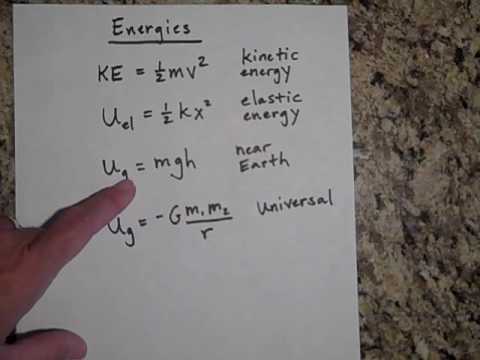 Energies
KE = ½mv² kinetic energy
U_el = ½kx² elastic energy
U_g = mgh near Earth
U_g = -G m₁m₂/r Universal